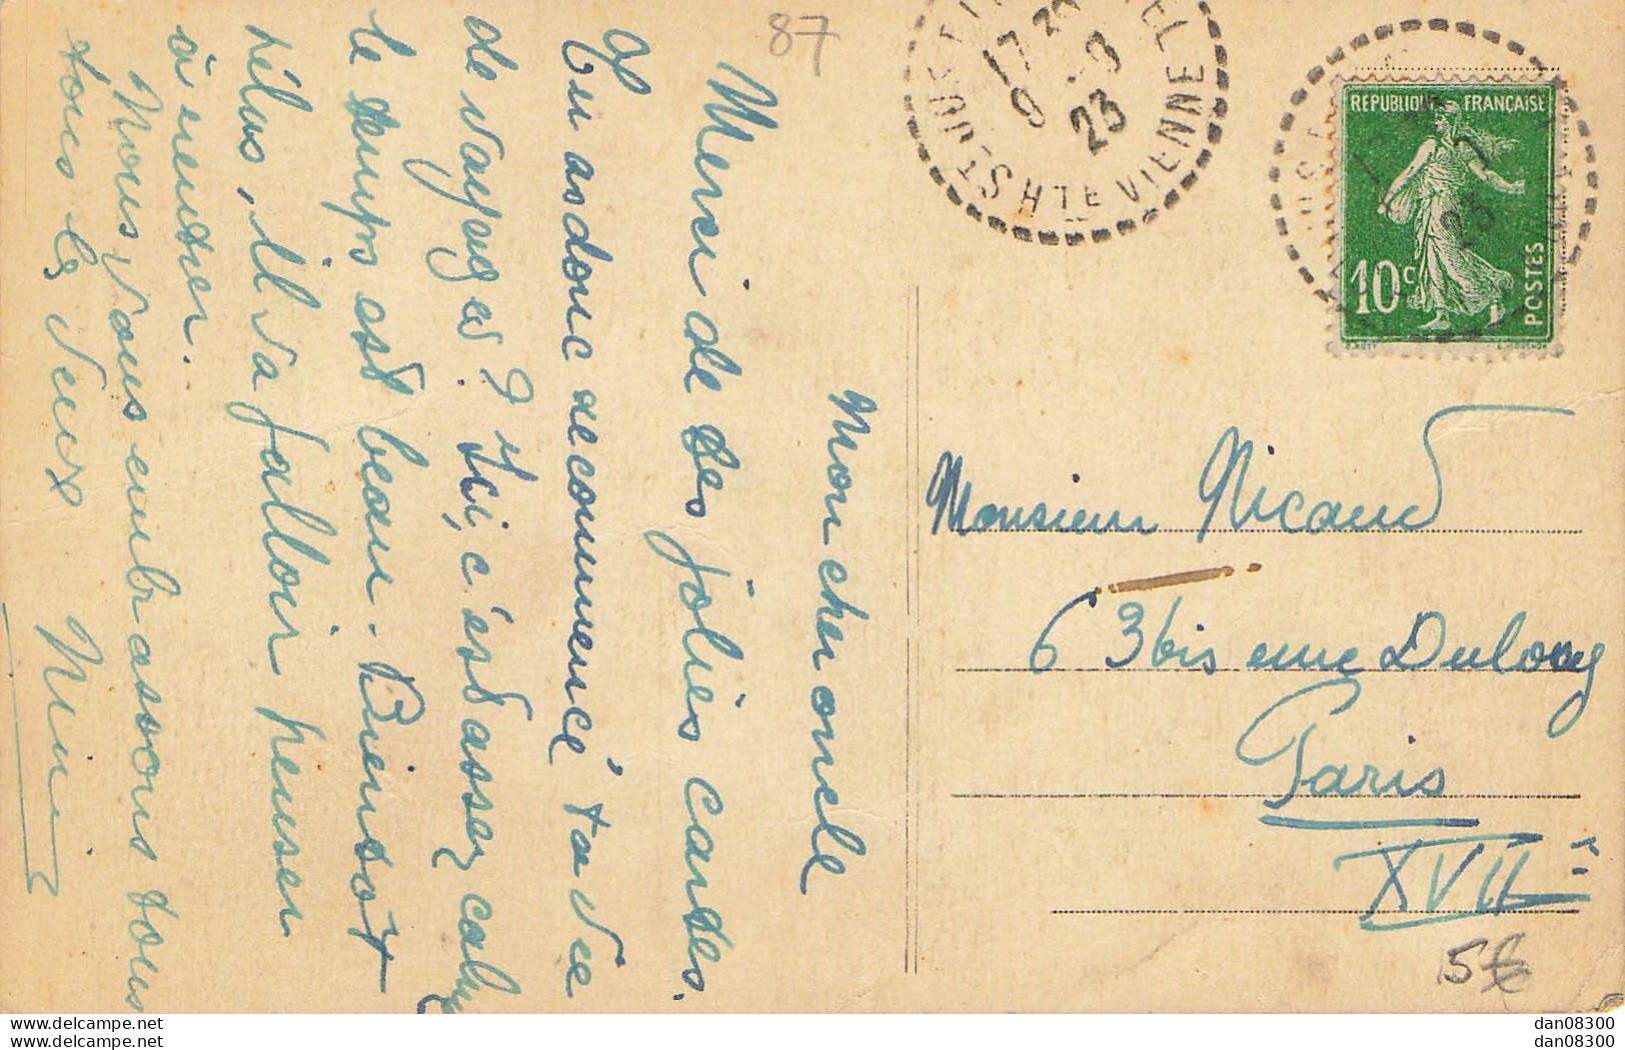 87
Mon cher oncle
Merci de tes jolies cartes.
Tu as donc recommencé ta vie
de voyages ? Ici, c'est assez calme
le temps est beau. Bientôt
hélas, il va falloir penser
à rentrer.
Nous vous embrassons tous
tous les deux
Nini
17
9
23
HTE VIENNE
REPUBLIQUE FRANÇAISE
10c
POSTES
23
Monsieur Nicaud
63bis rue Dulong
Paris
XVII
5€
www.delcampe.net
www.delcampe.net
dan08300
dan08300